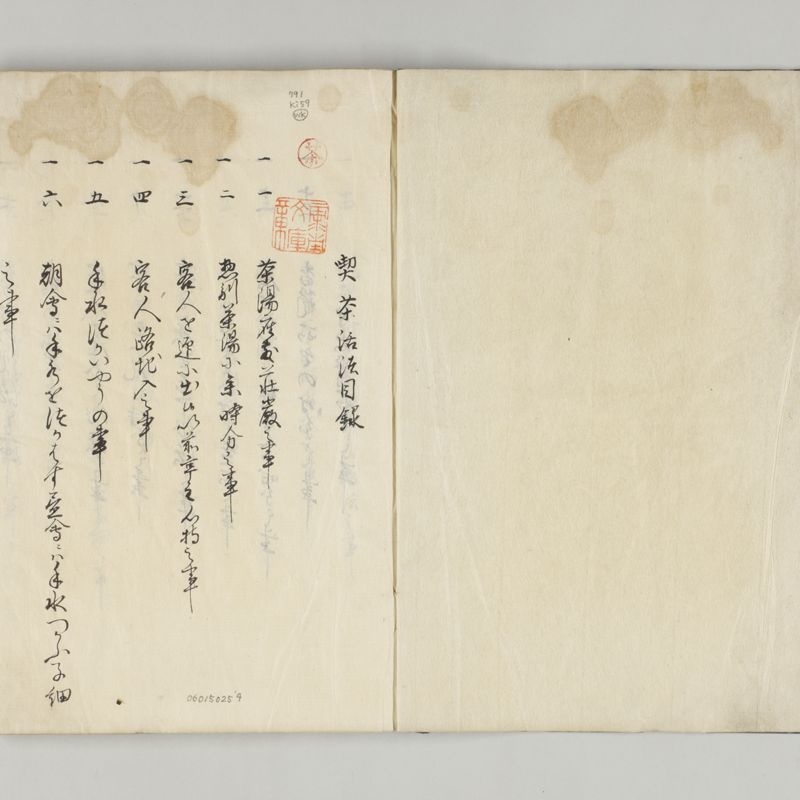 喫茶活法目録
一 一 茶湯座敷荘厳之事
一 二 惣別茶湯ニ来時分之事
一 三 客人を迎ニ出ル以前亭主心持之事
一 四 客人路地入之事
一 五 手水つかいやうの事
一 六 朝会ニハ手水をつかはす昼会ニハ手水つかふ子細
之事
791
Ki59
WK
06015025'9